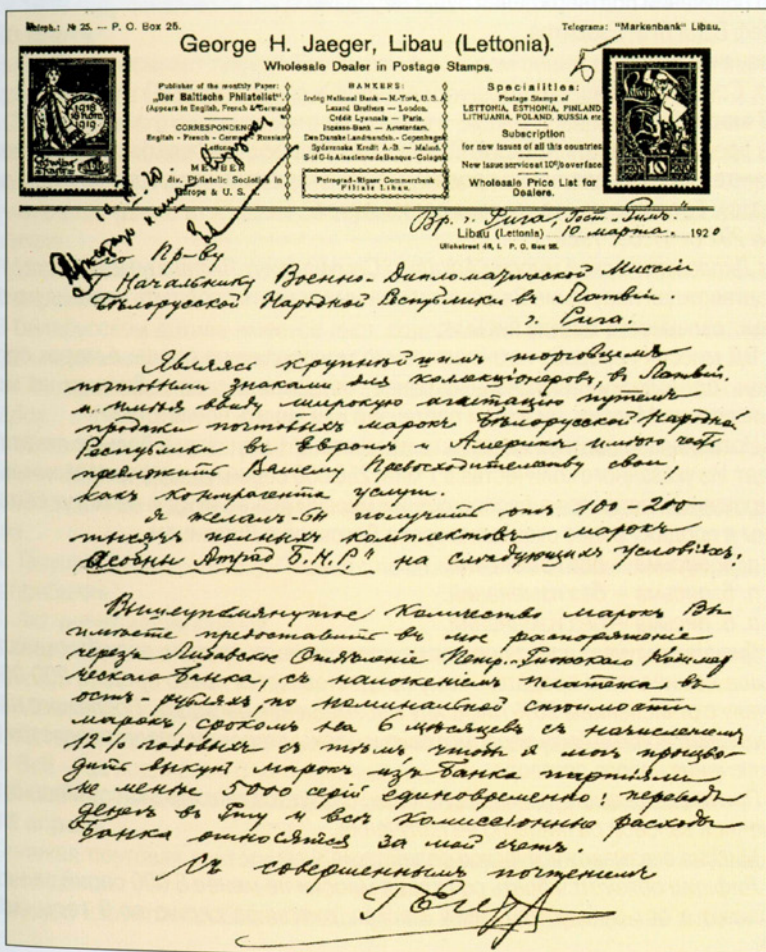 Teleph.: № 25. — P. O. Box 25.
Telegrams: "Markenbank" Libau.
George H. Jaeger, Libau (Lettonia).
Wholesale Dealer in Postage Stamps.
Publisher of the monthly Paper:
„Der Baltische Philatelist".
(Appears in English, French & German)
CORRESPONDENCE
English - French - German - Russian
Lettonian
MEMBER
of div. Philatelic Societies in
Europe & U. S.
BANKERS:
Irving National Bank — N.-York, U. S. A.
Lazard Brothers — London.
Crédit Lyonnais — Paris.
Incasso-Bank — Amsterdam.
Den Danske Landmandsb. - Copenhagen
Sydsvenska Kredit A.-B. — Malmö.
Sté Gle Alsacienne de Banque - Cologne
Petrograd-Rigaer Commerzbank
Filiale Libau.
Specialities:
Postage Stamps of
LETTONIA, ESTHONIA, FINLAND,
LITHUANIA, POLAND, RUSSIA etc.
Subscription
for new issues of all this countries.
New issue service at 10% over face.
Wholesale Price List for
Dealers.
1918
18 NOV.
1919
Latwija
10
5
10.III.20
Вр. г. Рига, Гост. „Римъ"
Libau (Lettonia) 10 марта 1920
Ulichstreet 48, I. P. O. Box 25.
Его Пр-ву
Г Начальнику Военно-Дипломатической Миссіи
Бѣлорусской Народной Республики въ Латвіи
г. Рига.
Являясь крупнѣйшимъ торговцемъ
почтовыми знаками для коллекціонеровъ, въ Латвіи,
и имѣя ввиду широкую агитацію путемъ
продажи почтовыхъ марокъ Бѣлорусской Народной
Республики въ Европѣ и Америкѣ имѣю честь
предложить Вашему Превосходительству свои,
какъ контрагента услуги.
Я желалъ-бы получить отъ 100-200
тысячъ полныхъ комплектовъ марокъ
„Асобны Атрад Б.Н.Р." на слѣдующихъ условіяхъ:
Вышеупомянутое количество марокъ Вы
имѣете предоставить въ мое распоряженіе
черезъ Либавское Отдѣленіе Петр.-Рижскаго Коммер
ческаго Банка, съ наложеніемъ платежа въ
ост-рубляхъ, по номинальной стоимости
марокъ, срокомъ на 6 мѣсяцевъ съ начисленіемъ
12% годовыхъ съ тѣмъ чтобы я могъ произво-
дить выкупъ марокъ изъ банка партіями
не менѣе 5000 серій единовременно; переводъ
денегъ въ Ригу и всѣ комиссіонные расходы
банка относятся за мой счетъ.
Съ совершеннымъ почтеніемъ
Г Егер